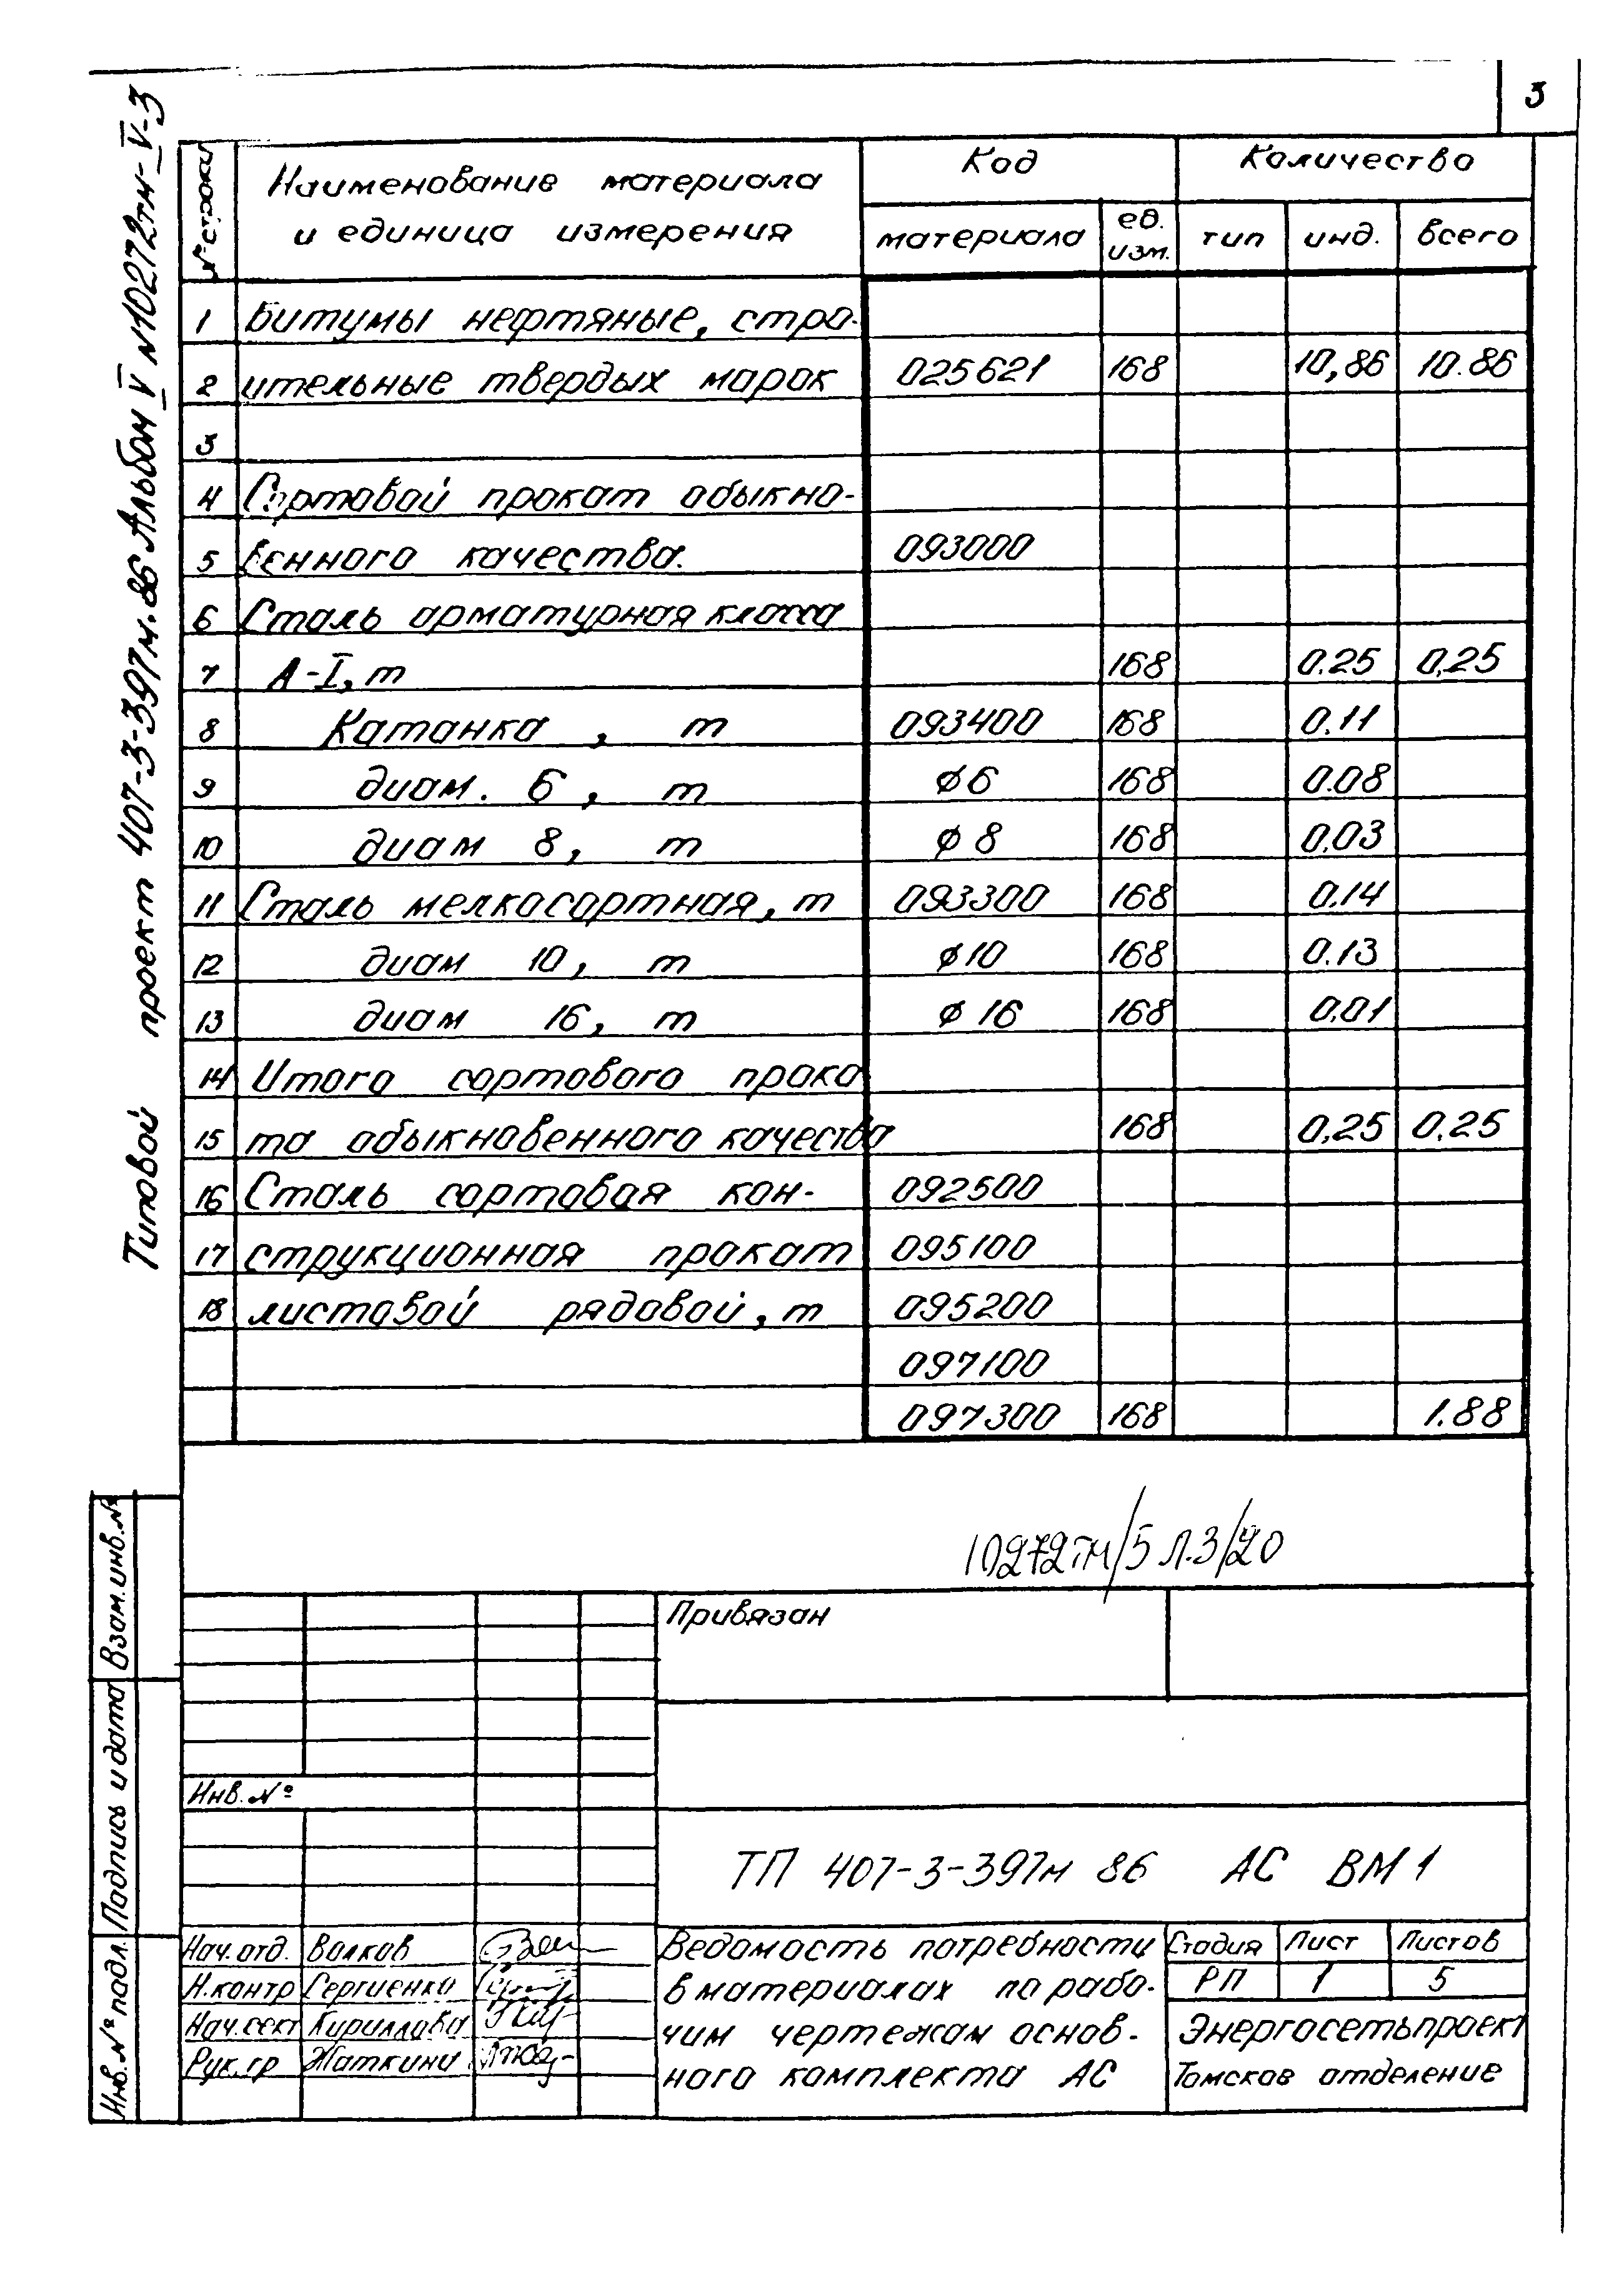 3
Типовой проект 407-3-397м.86 Альбом V N10272тм-V-3
№ строки
Наименование материала
и единица измерения
Код
Количество
материала
ед.
изм.
тип
инд.
всего
1 Битумы нефтяные, стро-
2 ительные твердых марок 025621 168 10,86 10.86
3
4 Сортовой прокат обыкно-
5 венного качества. 093000
6 Сталь арматурная класса
7 А-I, т 168 0.25 0,25
8 Катанка , т 093400 168 0.11
9 диам. 6, т ⌀6 168 0.08
10 диам 8, т ⌀ 8 168 0,03
11 Сталь мелкосортная, т 093300 168 0.14
12 диам 10, т ⌀10 168 0.13
13 диам 16, т ⌀ 16 168 0,01
14 Итого сортового прока
15 та обыкновенного качества 168 0,25 0,25
16 Сталь сортовая кон- 092500
17 струкционная прокат 095100
18 листовой рядовой, т 095200
097100
097300 168 1.88
10272тм/5 л.3/20
Привязан
Инв. №
ТП 407-3-397м 86 АС ВМ1
Нач. отд. Волков
Н.контр Сергиенко
Нач.сект Кириллова
Рук.гр Жаткина
Ведомость потребности
в материалах по рабо-
чим чертежам основ-
ного комплекта АС
Стадия Лист Листов
РП 1 5
Энергосетьпроект
Томское отделение
Взам.инв.№
Подпись и дата
Инв.№ подл.